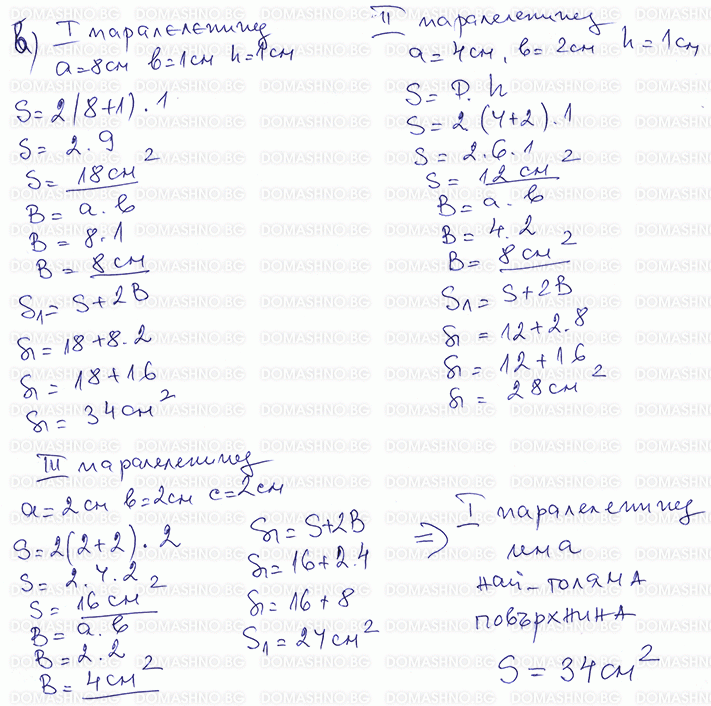 б) I паралелепипед
a=8см b=1см h=1см
S=2(8+1).1
S= 2.9
S= 18см²
B= a.b
B= 8.1
B= 8см
S₁= S+2B
S₁=18+8.2
S₁= 18+16
S₁= 34см²
II паралелепипед
a= 4см, b= 2см h=1см
S= P.h
S= 2(4+2).1
S= 2.6.1
S= 12см²
B= a.b
B= 4.2
B= 8см²
S₁= S+2B
S₁= 12+2.8
S₁= 12+16
S₁= 28см²
III паралелепипед
a=2см b=2см c=2см
S=2(2+2).2
S= 2.4.2
S= 16см²
B= a.b
B= 2.2
B= 4см²
S₁= S+2B
S₁=16+2.4
S₁=16+8
S₁=24см²
=> I паралелепипед
има
най-голяма
повърхнина
S= 34см²
DOMASHNO.BG